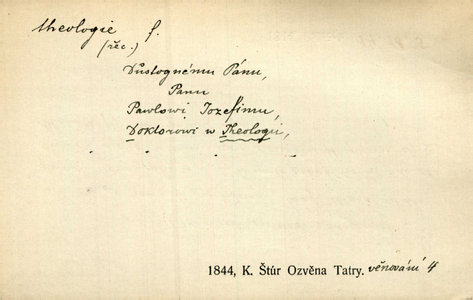 theologie f.
(řec.)
Důstognému Pánu,
Panu
Pawlowi Jozefimu,
Doktorowi w Theologii,
. . . .
1844, K. Štúr Ozvěna Tatry. věnování 4